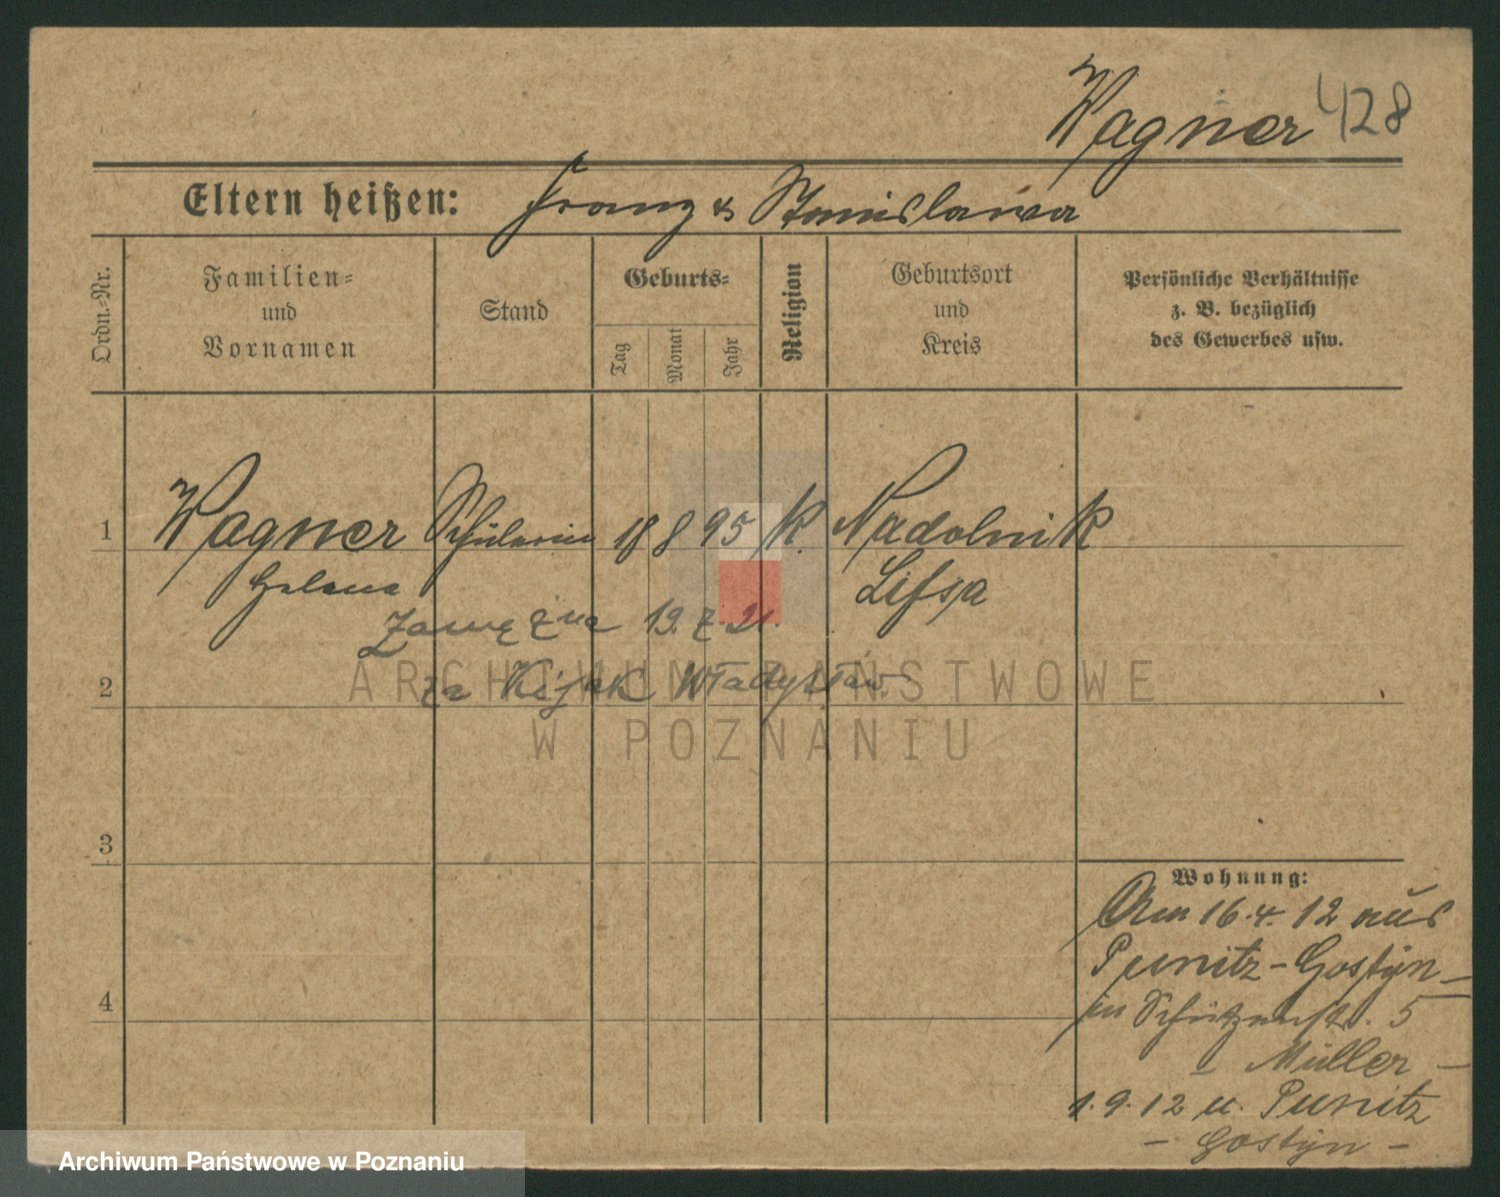 Wagner 428
Eltern heißen: Franz & Stanislawa
Ordn.-Nr.
Familien-
und
Vornamen
Stand
Geburts-
Tag
Monat
Jahr
Religion
Geburtsort
und
Kreis
Persönliche Verhältnisse
z. B. bezüglich
des Gewerbes usw.
1 Wagner Schülerin 18 8 95 K. Nadolnik
Helena Lissa
Zamężna 19.7.21.
2 za Kijak Władysław.
3
Wohnung:
Am 16.4.12 aus
Punitz-Gostyn-
in Schützenstr. 5
4
- Müller -
1.9.12 n. Punitz
- Gostyn -
ARCHIWUM PAŃSTWOWE
W POZNANIU
Archiwum Państwowe w Poznaniu